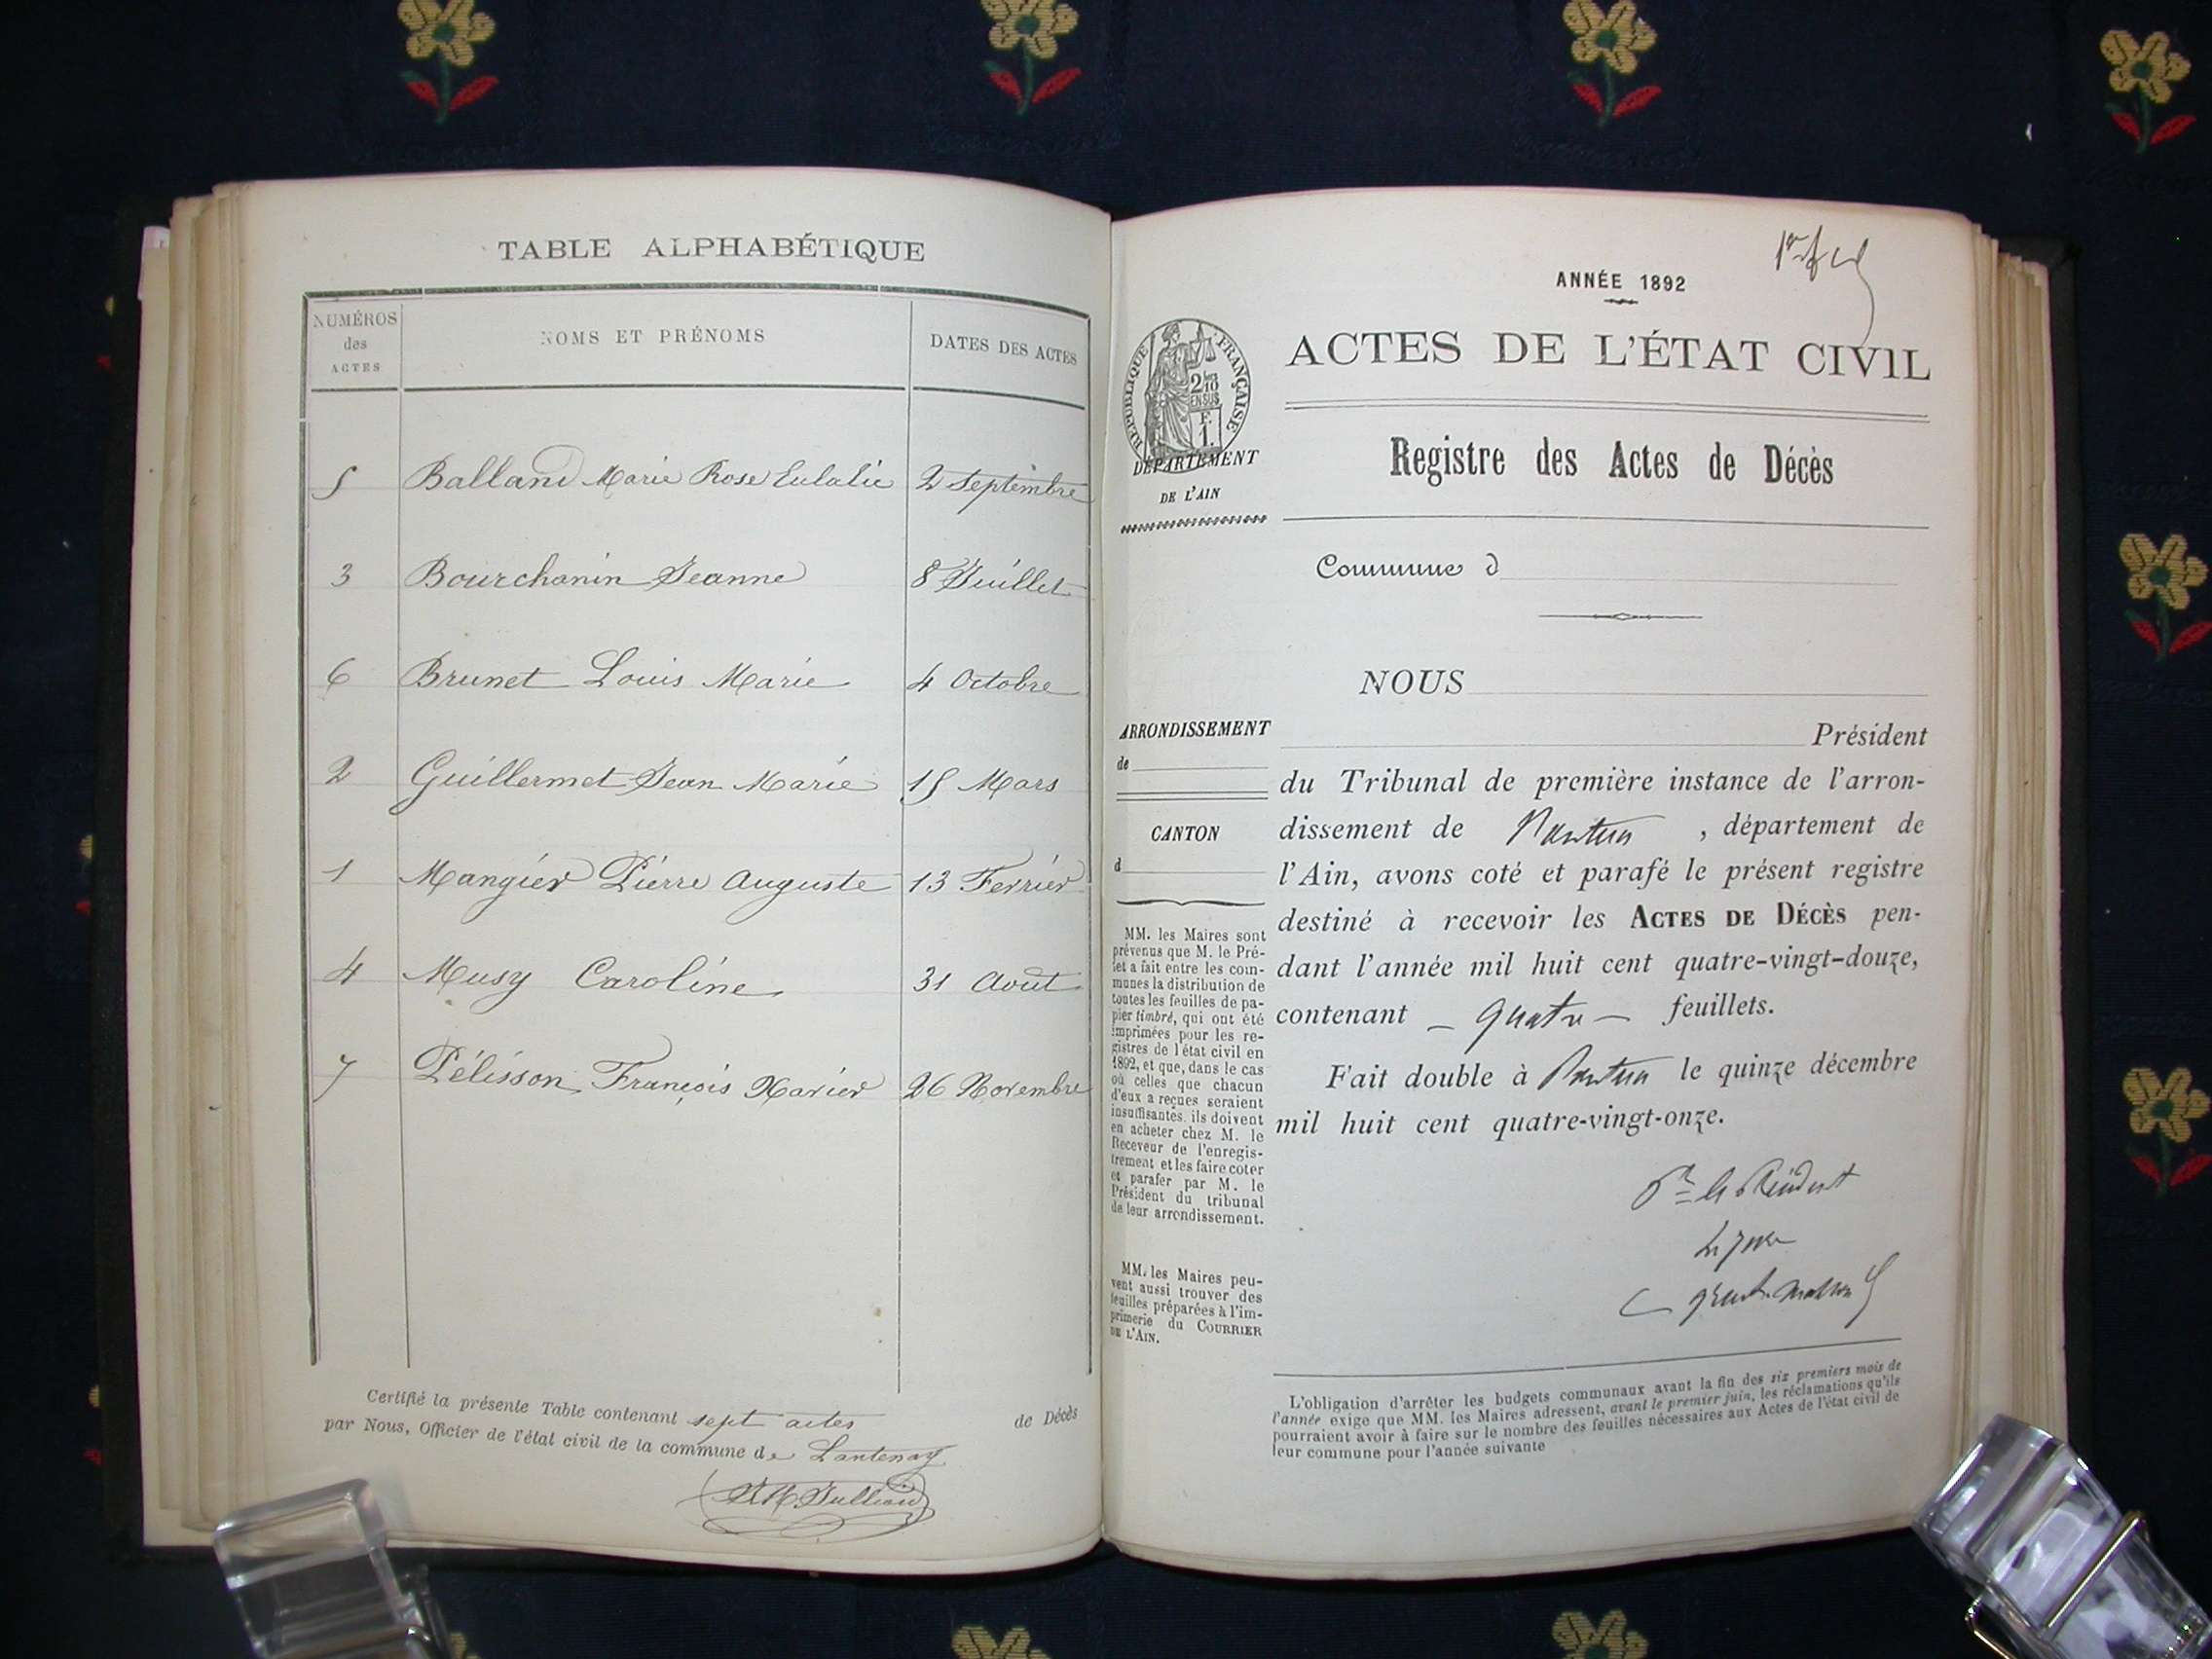 TABLE ALPHABÉTIQUE
NUMÉROS des ACTES NOMS ET PRÉNOMS DATES DES ACTES
5 Balland Marie Rose Eulalie 2 Septembre
3 Bourchanin Jeanne 8 Juillet
6 Brunet Louis Marie 4 Octobre
2 Guillermet Jean Marie 15 Mars
1 Mangier Pierre Auguste 13 Ferrier
4 Musy Caroline 31 Août
7 Pélisson François Xavier 26 Novembre
Certifié la présente Table contenant sept actes de Décès
par Nous, Officier de l'état civil de la commune de Lantenay
ANNÉE 1892
ACTES DE L'ÉTAT CIVIL
RÉPUBLIQUE FRANÇAISE
2/10 EN SUS
F.
1.
DÉPARTEMENT
DE L'AIN
Registre des Actes de Décès
Commune d
NOUS
ARRONDISSEMENT
de
CANTON
d
MM. les Maires sont
prévenus que M. le Pré-
fet a fait entre les com-
munes la distribution de
toutes les feuilles de pa-
pier timbré, qui ont été
imprimées pour les re-
gistres de l'état civil en
1892, et que, dans le cas
où celles que chacun
d'eux a reçues seraient
insuffisantes, ils doivent
en acheter chez M. le
Receveur de l'enregis-
trement et les faire coter
et parafer par M. le
Président du tribunal
de leur arrondissement.
MM. les Maires peu-
vent aussi trouver des
feuilles préparées à l'im-
primerie du COURRIER
DE L'AIN.
Président
du Tribunal de première instance de l'arron-
dissement de Nantua, département de
l'Ain, avons coté et parafé le présent registre
destiné à recevoir les ACTES DE DÉCÈS pen-
dant l'année mil huit cent quatre-vingt-douze,
contenant – quatre – feuillets.
Fait double à Nantua le quinze décembre
mil huit cent quatre-vingt-onze.
Pr le Président
L'obligation d'arrêter les budgets communaux avant la fin des six premiers mois de
l'année exige que MM. les Maires adressent, avant le premier juin, les réclamations qu'ils
pourraient avoir à faire sur le nombre des feuilles nécessaires aux Actes de l'état civil de
leur commune pour l'année suivante